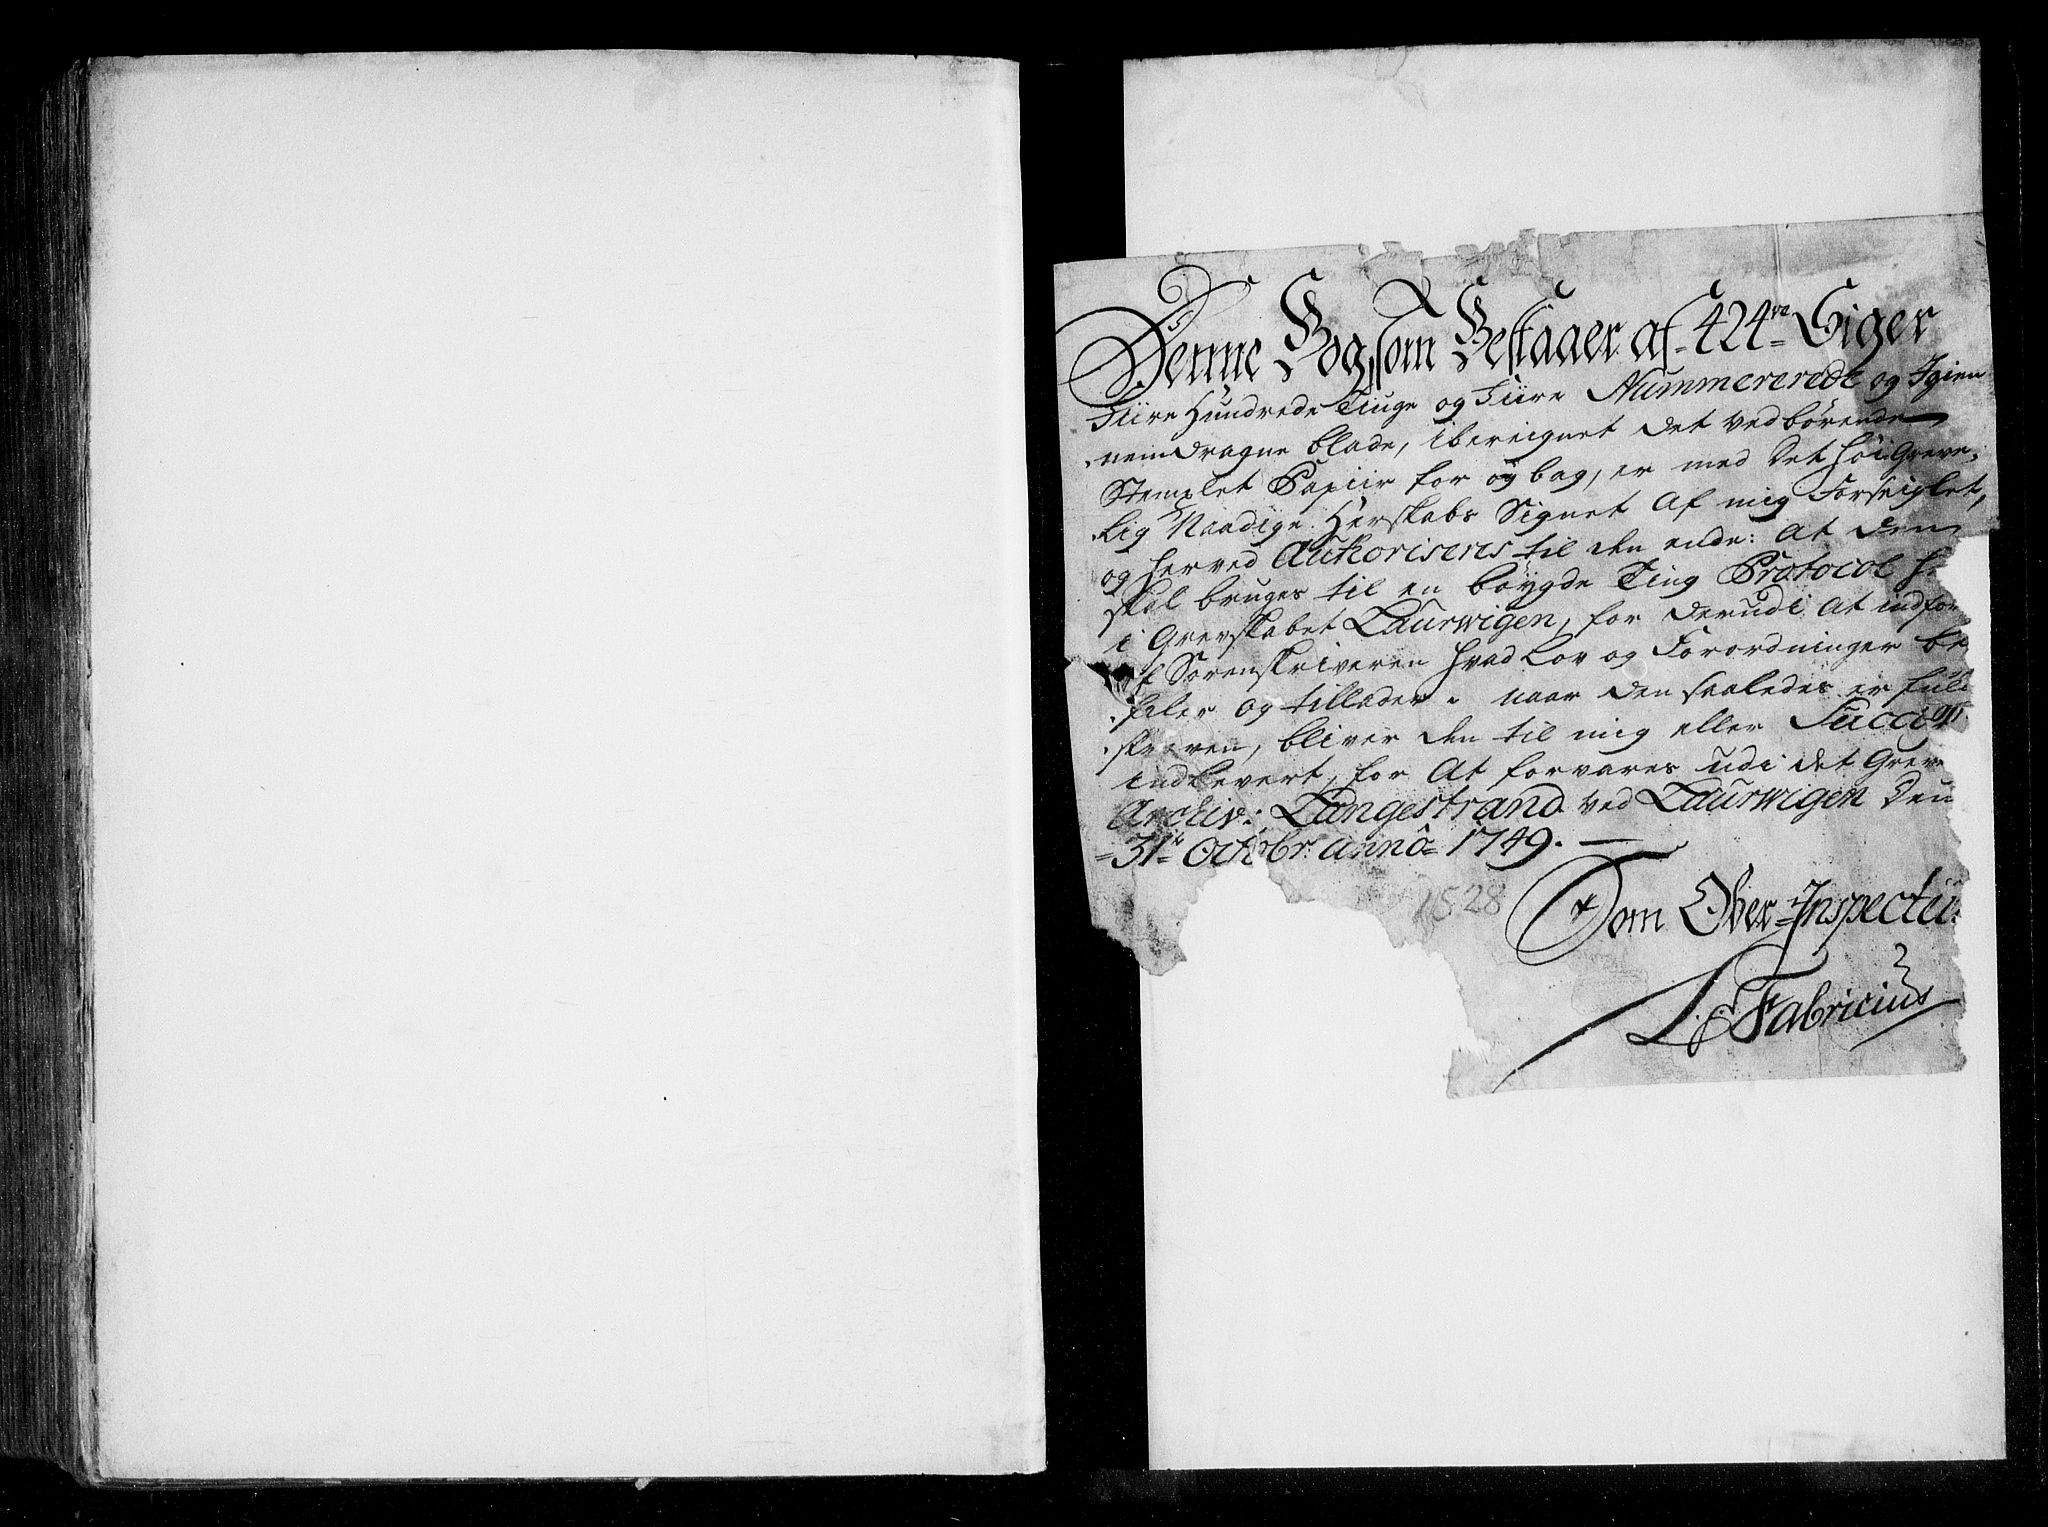 Denne Bog som Bestaaer af 424re Siger
Fiire Hundrede Tiuge og Fiire Nummererede og Igien
nemdragne blade, ibereignet det vedbørende
Stemplet Papiir for og bag, er med Det høi Greve
lig Naadige Herskabs Signet Af mig Forseiglet,
og herved Authoriseres til den ende: At den
skal bruges til en bøygde Ting Protocol
i Grevskabet Laurwigen, for derudi At indfør
af Sorenskriveren hvad Lov og Forordninger be
faler og tillader. naar den saaledes er full
skreven, bliver den til mig eller
indlevert, for At forvares udi det Greve
Archiv: Langestrand ved Laurwigen Den
31te Octobr: anno 1749.
1528
Som Ober-Inspecteu
L: Fabricius